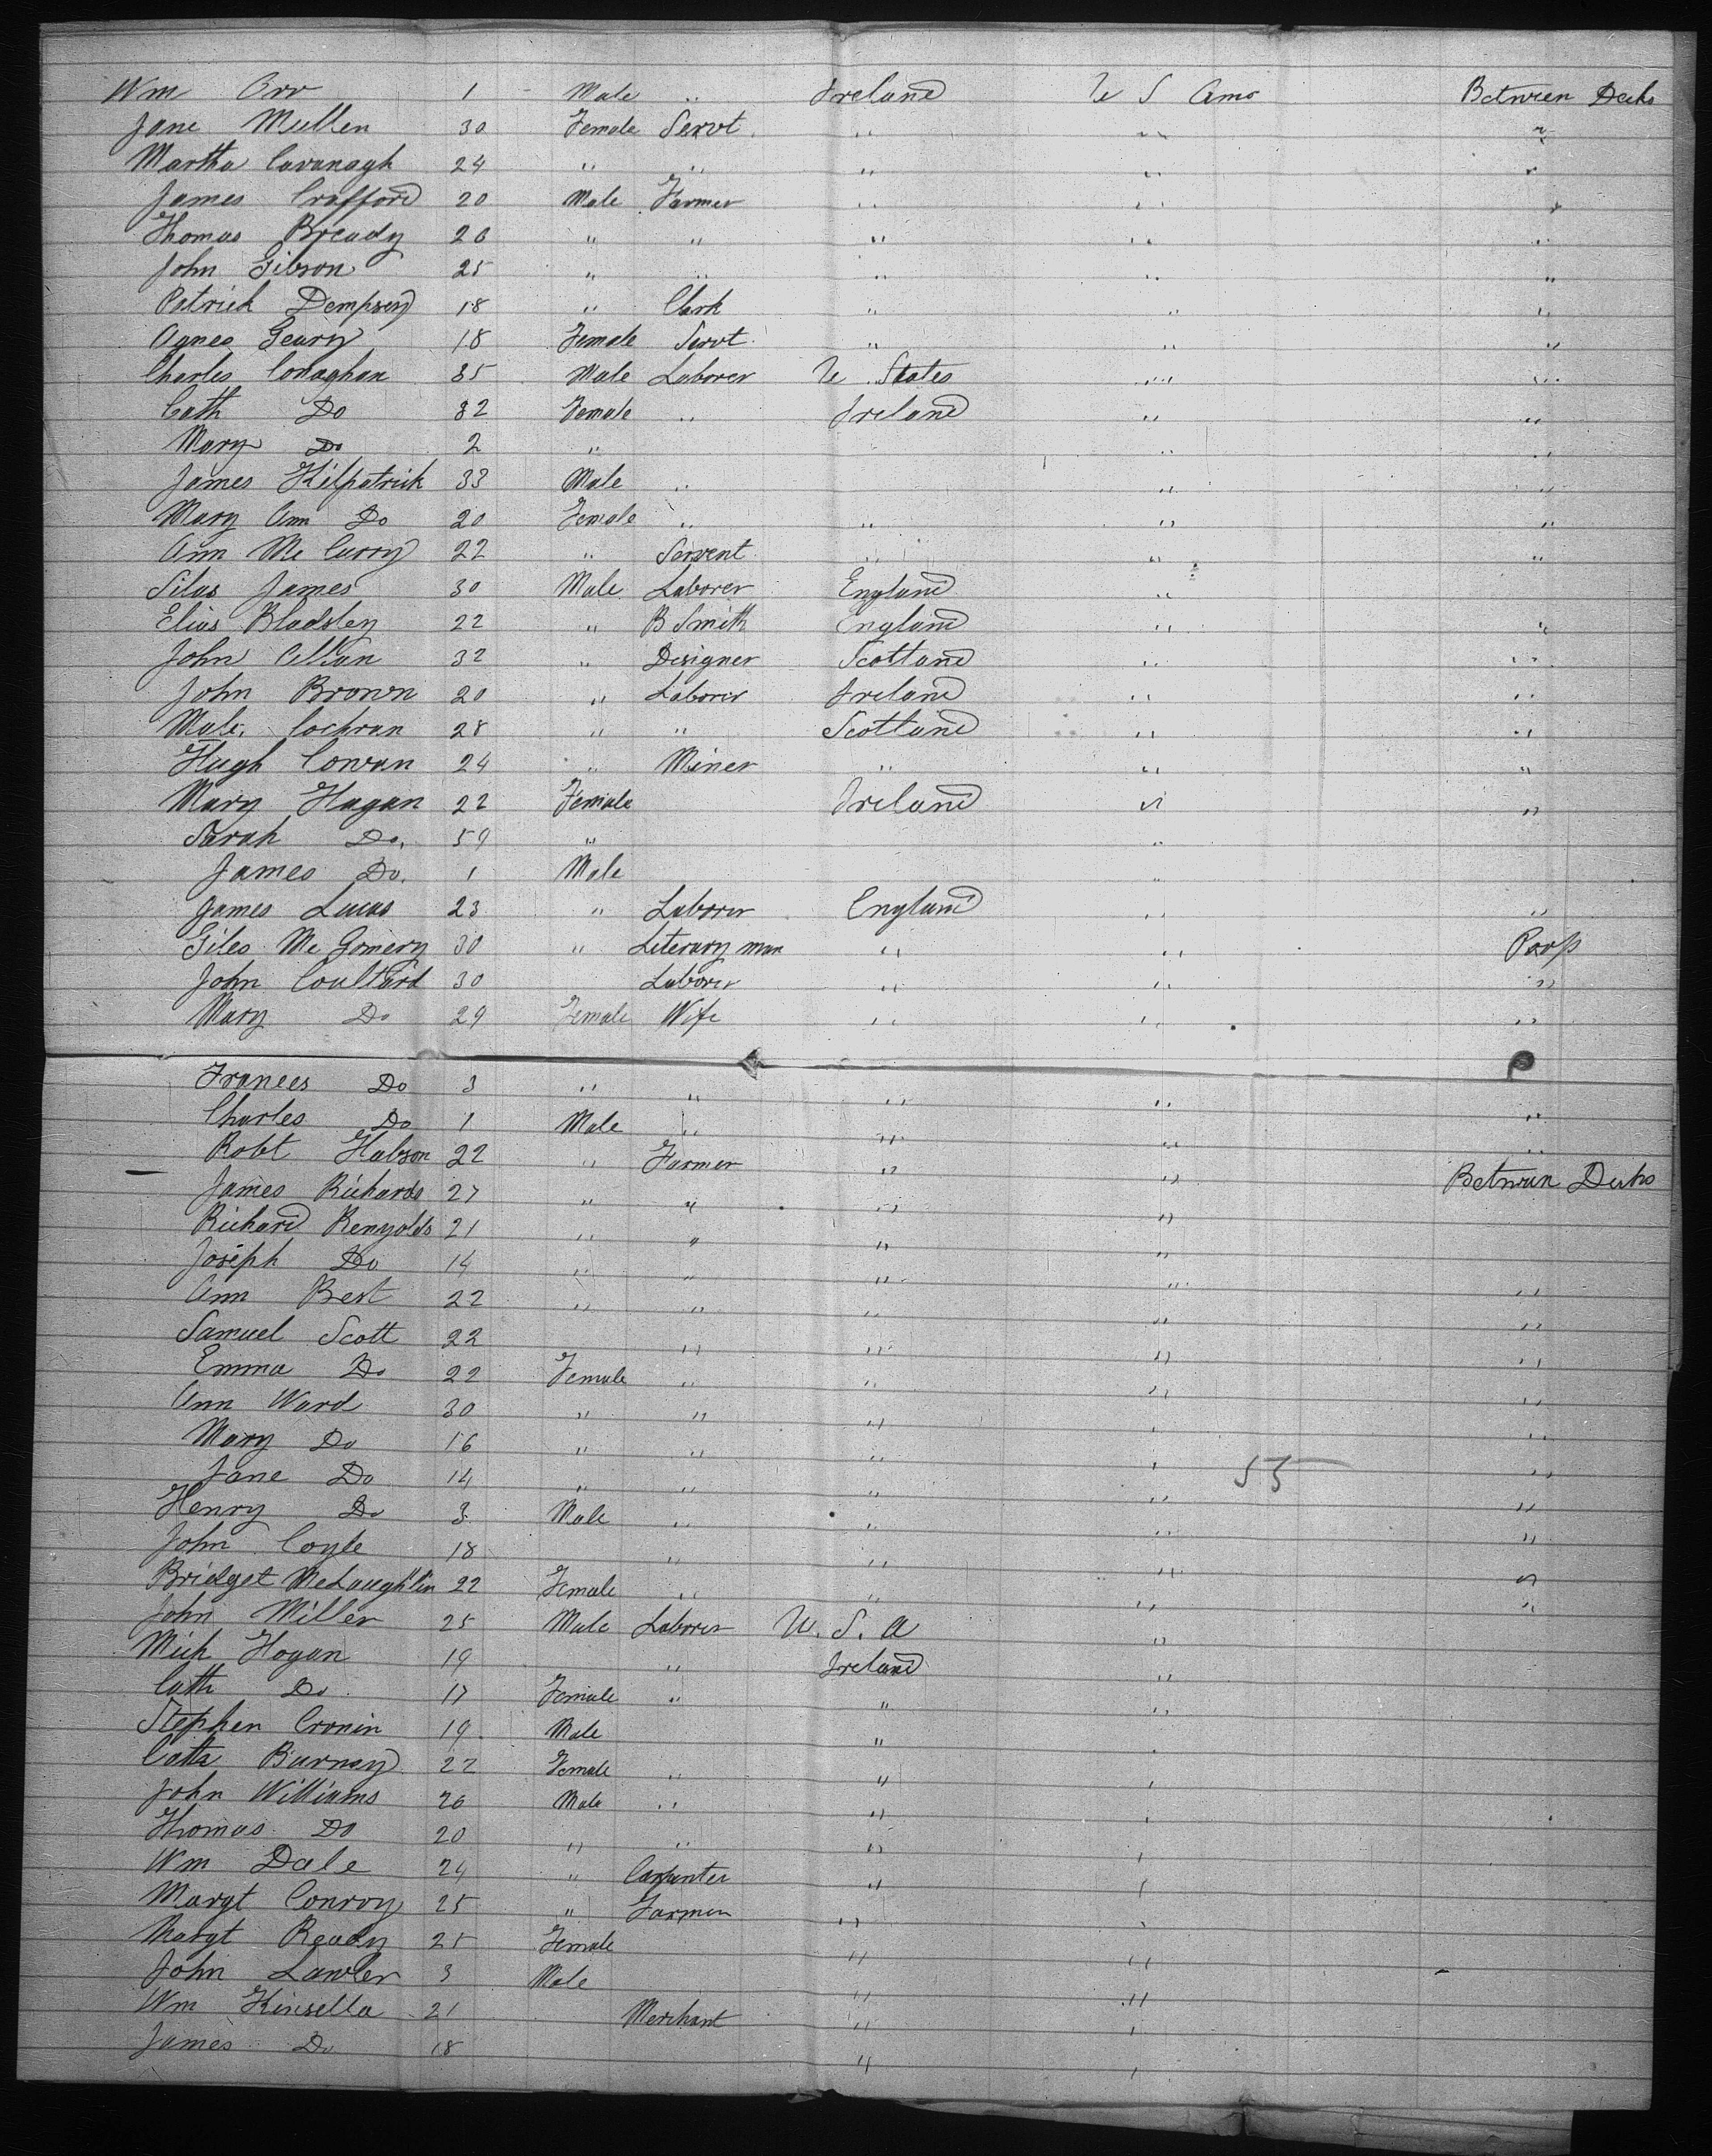 Wm Orr 1 Male " Ireland U S Ama Between Decks
Jane Mullen 30 Female Servt. " " "
Martha Cavanagh 24 " " " " "
James Crafford 20 Male Farmer " " "
Thomas Bready 26 " " " " "
John Gibson 25 " " " " "
Patrick Dempsey 18 " Clark " " "
Agnes Geary 18 Female Servt. " " "
Charles Conaghan 35 Male Laborer U. States " "
Cath Do 32 Female " Ireland " "
Mary Do 2 " " "
James Kilpatrick 33 Male " " "
Mary Ann Do 20 Female " " " "
Ann Mc Curry 22 " Servent " " "
Silas James 30 Male Laborer England "
Elias Bladsley 22 " B Smith England " "
John Allan 32 " Designer Scotland " "
John Brown 20 " Laborer Ireland " "
Malc. Cochran 28 " " Scotland " "
Hugh Cowan 24 " Miner " " "
Mary Hagan 22 Female Ireland " "
Sarah Do. 59 " "
James Do. 1 Male "
James Lucas 23 " Laborer England " "
Giles Mc Gomery 30 " Literary man " " Poop
John Coultard 30 Laborer " " "
Mary Do 29 Female Wife " " "
Frances Do 3 " " " " "
Charles Do 1 Male " " " "
Robt Habson 22 " Farmer " " Between Decks
James Richards 27 " " " "
Richard Renyolds 21 " " " "
Joseph Do 14 " " " " "
Ann Best 22 " " " " "
Samuel Scott 22 " " " "
Emma Do 22 Female " " " "
Ann Ward 30 " " " " "
Mary Do 16 " " " " "
Jane Do 14 " " " " 55 "
Henry Do 3 Male " " " "
John Coyle 18 " " " "
Bridget McLaughlin 22 Female " " " "
John Miller 25 Male Laborer U. S. A "
Mich Hogan 19 " Ireland "
Cath Do 17 Female " " "
Stephen Cronin 19 Male "
Cath Burney 22 Female " " "
John Williams 26 Male " " "
Thomas Do 20 " " " "
Wm Dale 24 " Carpenter " "
Margt Conroy 25 " Farmer "
Margt Ready 25 Female " "
John Lawler 3 Male " "
Wm Kinsella 21 Merchant " "
James Do 18 " "